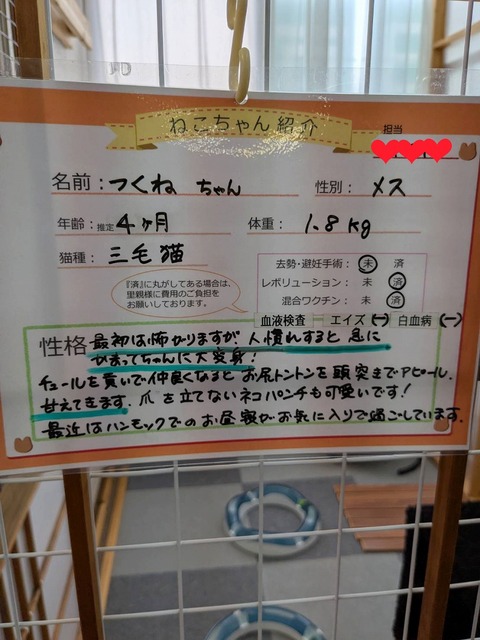 ねこちゃん紹介
担当
名前：つくね ちゃん
性別：メス
年齢：推定 4ヶ月
体重：1.8kg
猫種：三毛猫
『済』に丸がしてある場合は、
里親様に費用のご負担を
お願いしております。
去勢・避妊手術： 未 済
レボリューション： 未 済
混合ワクチン： 未 済
血液検査 エイズ(－) 白血病(－)
性格 最初は怖がりますが 人慣れすると 急に
かまってちゃんに大変身！
チュールを貰いて仲良くなると お尻トントンを 頭突きまでアピール。
甘えてきます。爪を立てないネコパンチも可愛いです！
最近はハンモックでのお昼寝がお気に入りで過ごしています。